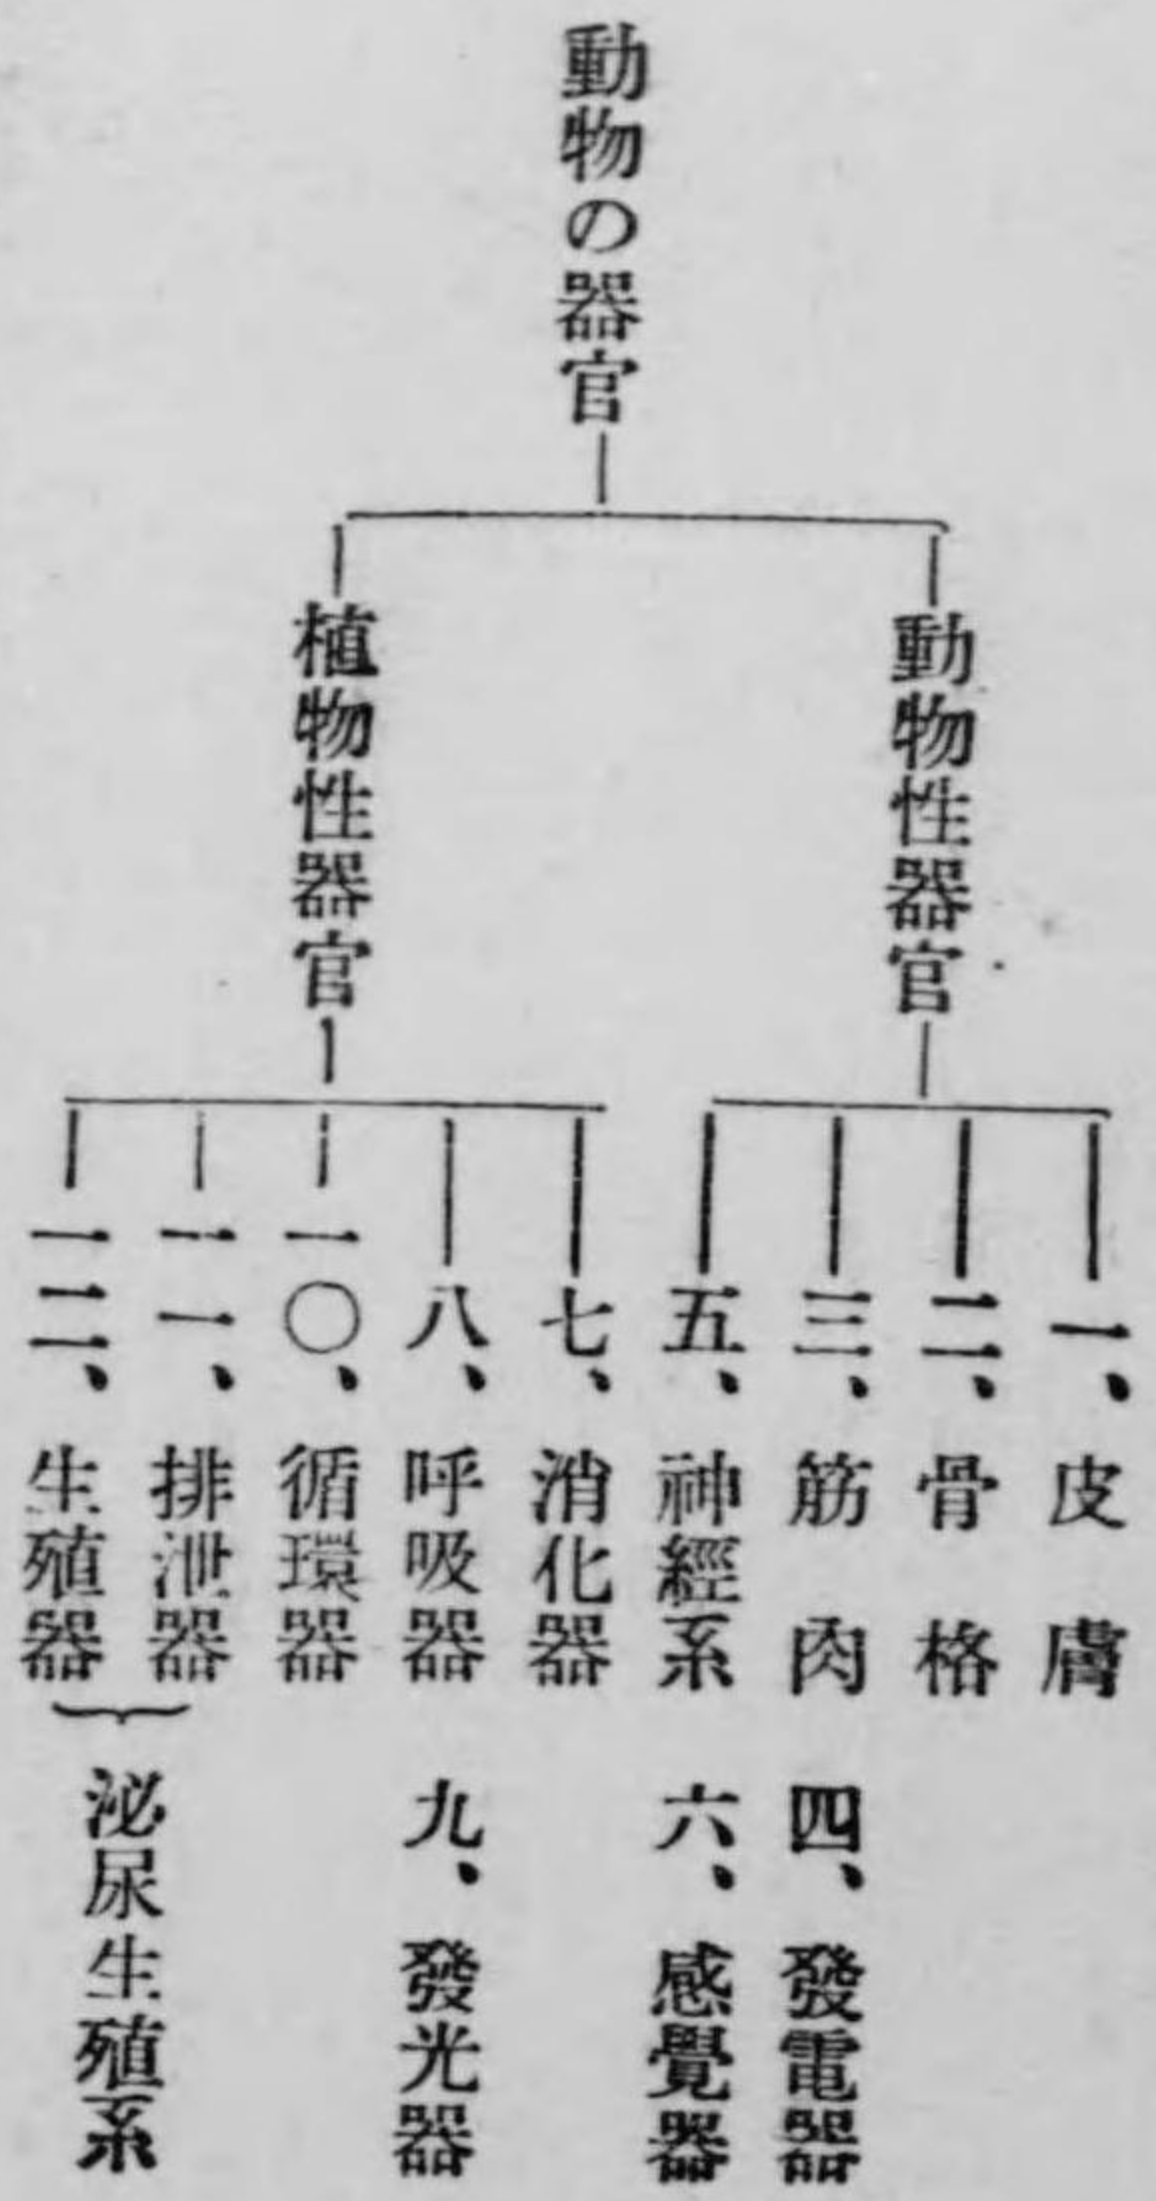 動物の器官
動物性器官
一、皮膚
二、骨格
三、筋肉　四、發電器
五、神經系　六、感覺器
植物性器官
七、消化器
八、呼吸器　九、發光器
一〇、循環器
一一、排泄器
一二、生殖器
泌尿生殖系